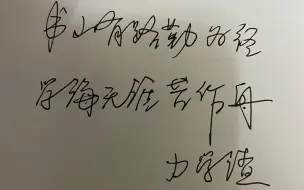 书山有路勤为径
学海无涯苦作舟
力学渣